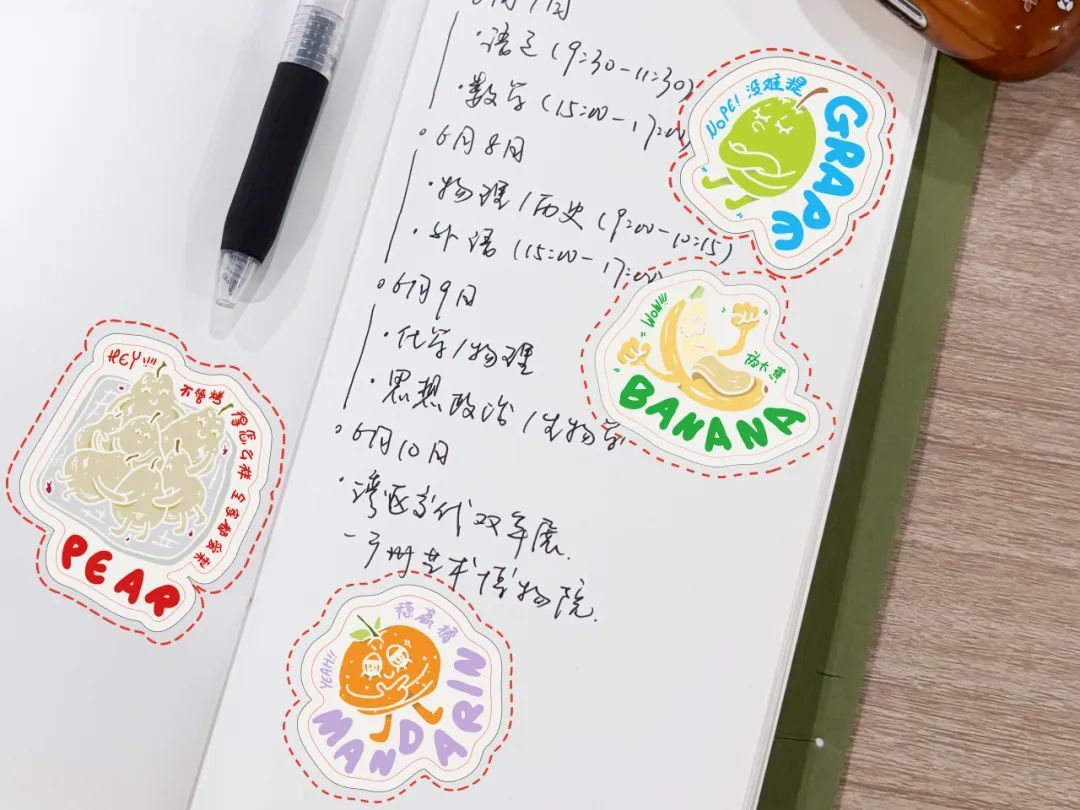 6月7日
·语文(9:30-11:30)
·数学(15:00-17:00)
。6月8日
·物理/历史(9:00-10:15)
·外语(15:00-17:00)
。6月9日
·化学/物理
·思想政治/生物学
。6月10日
·湾区当代双年展.
-广州艺术博物院.
NOPE! 没难提
GRAPE
WOW!!!
BANANA
HEY!!!!
不管烤得怎么样 全家都爱梨
PEAR
稳赢橘
YEAH!!
MANDARIN